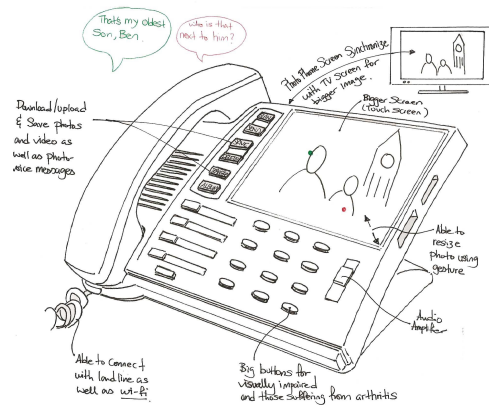 That's my oldest
Son, Ben.
who is that
next to him?
Photo Phone Screen Synchronize
with TV Screen for
bigger image.
Bigger Screen
(Touch Screen)
Download/upload
& Save photos
and video as
well as photo-
voice messages
Able to
resize
photo using
gesture
Audio
Amplifier
Able to Connect
with landline as
well as wi-fi
Big buttons for
visually impaired
and those suffering from arthritis